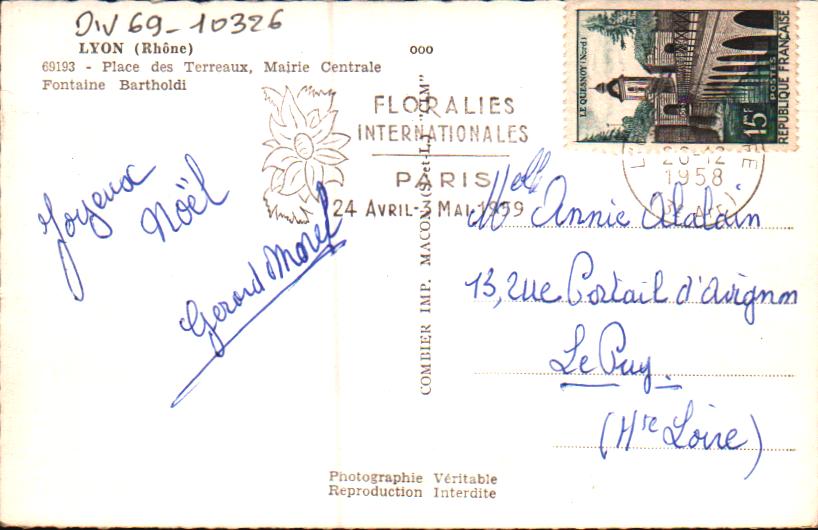 DIV 69-10326
LYON (Rhône)
69193 - Place des Terreaux, Mairie Centrale
Fontaine Bartholdi
ooo
FLORALIES
INTERNATIONALES
PARIS
24 AVRIL-3 MAI 1959
LE QUESNOY (Nord)
15F
POSTES
REPUBLIQUE FRANÇAISE
26-12
1958
Joyeux
Noël
Gerard Morel
COMBIER IMP. MACON (S.-et-L.) "CIM"
Melle Annie Alalain
13, rue Portail d'Avignon
Le Puy
(Hte Loire)
Photographie Véritable
Reproduction Interdite